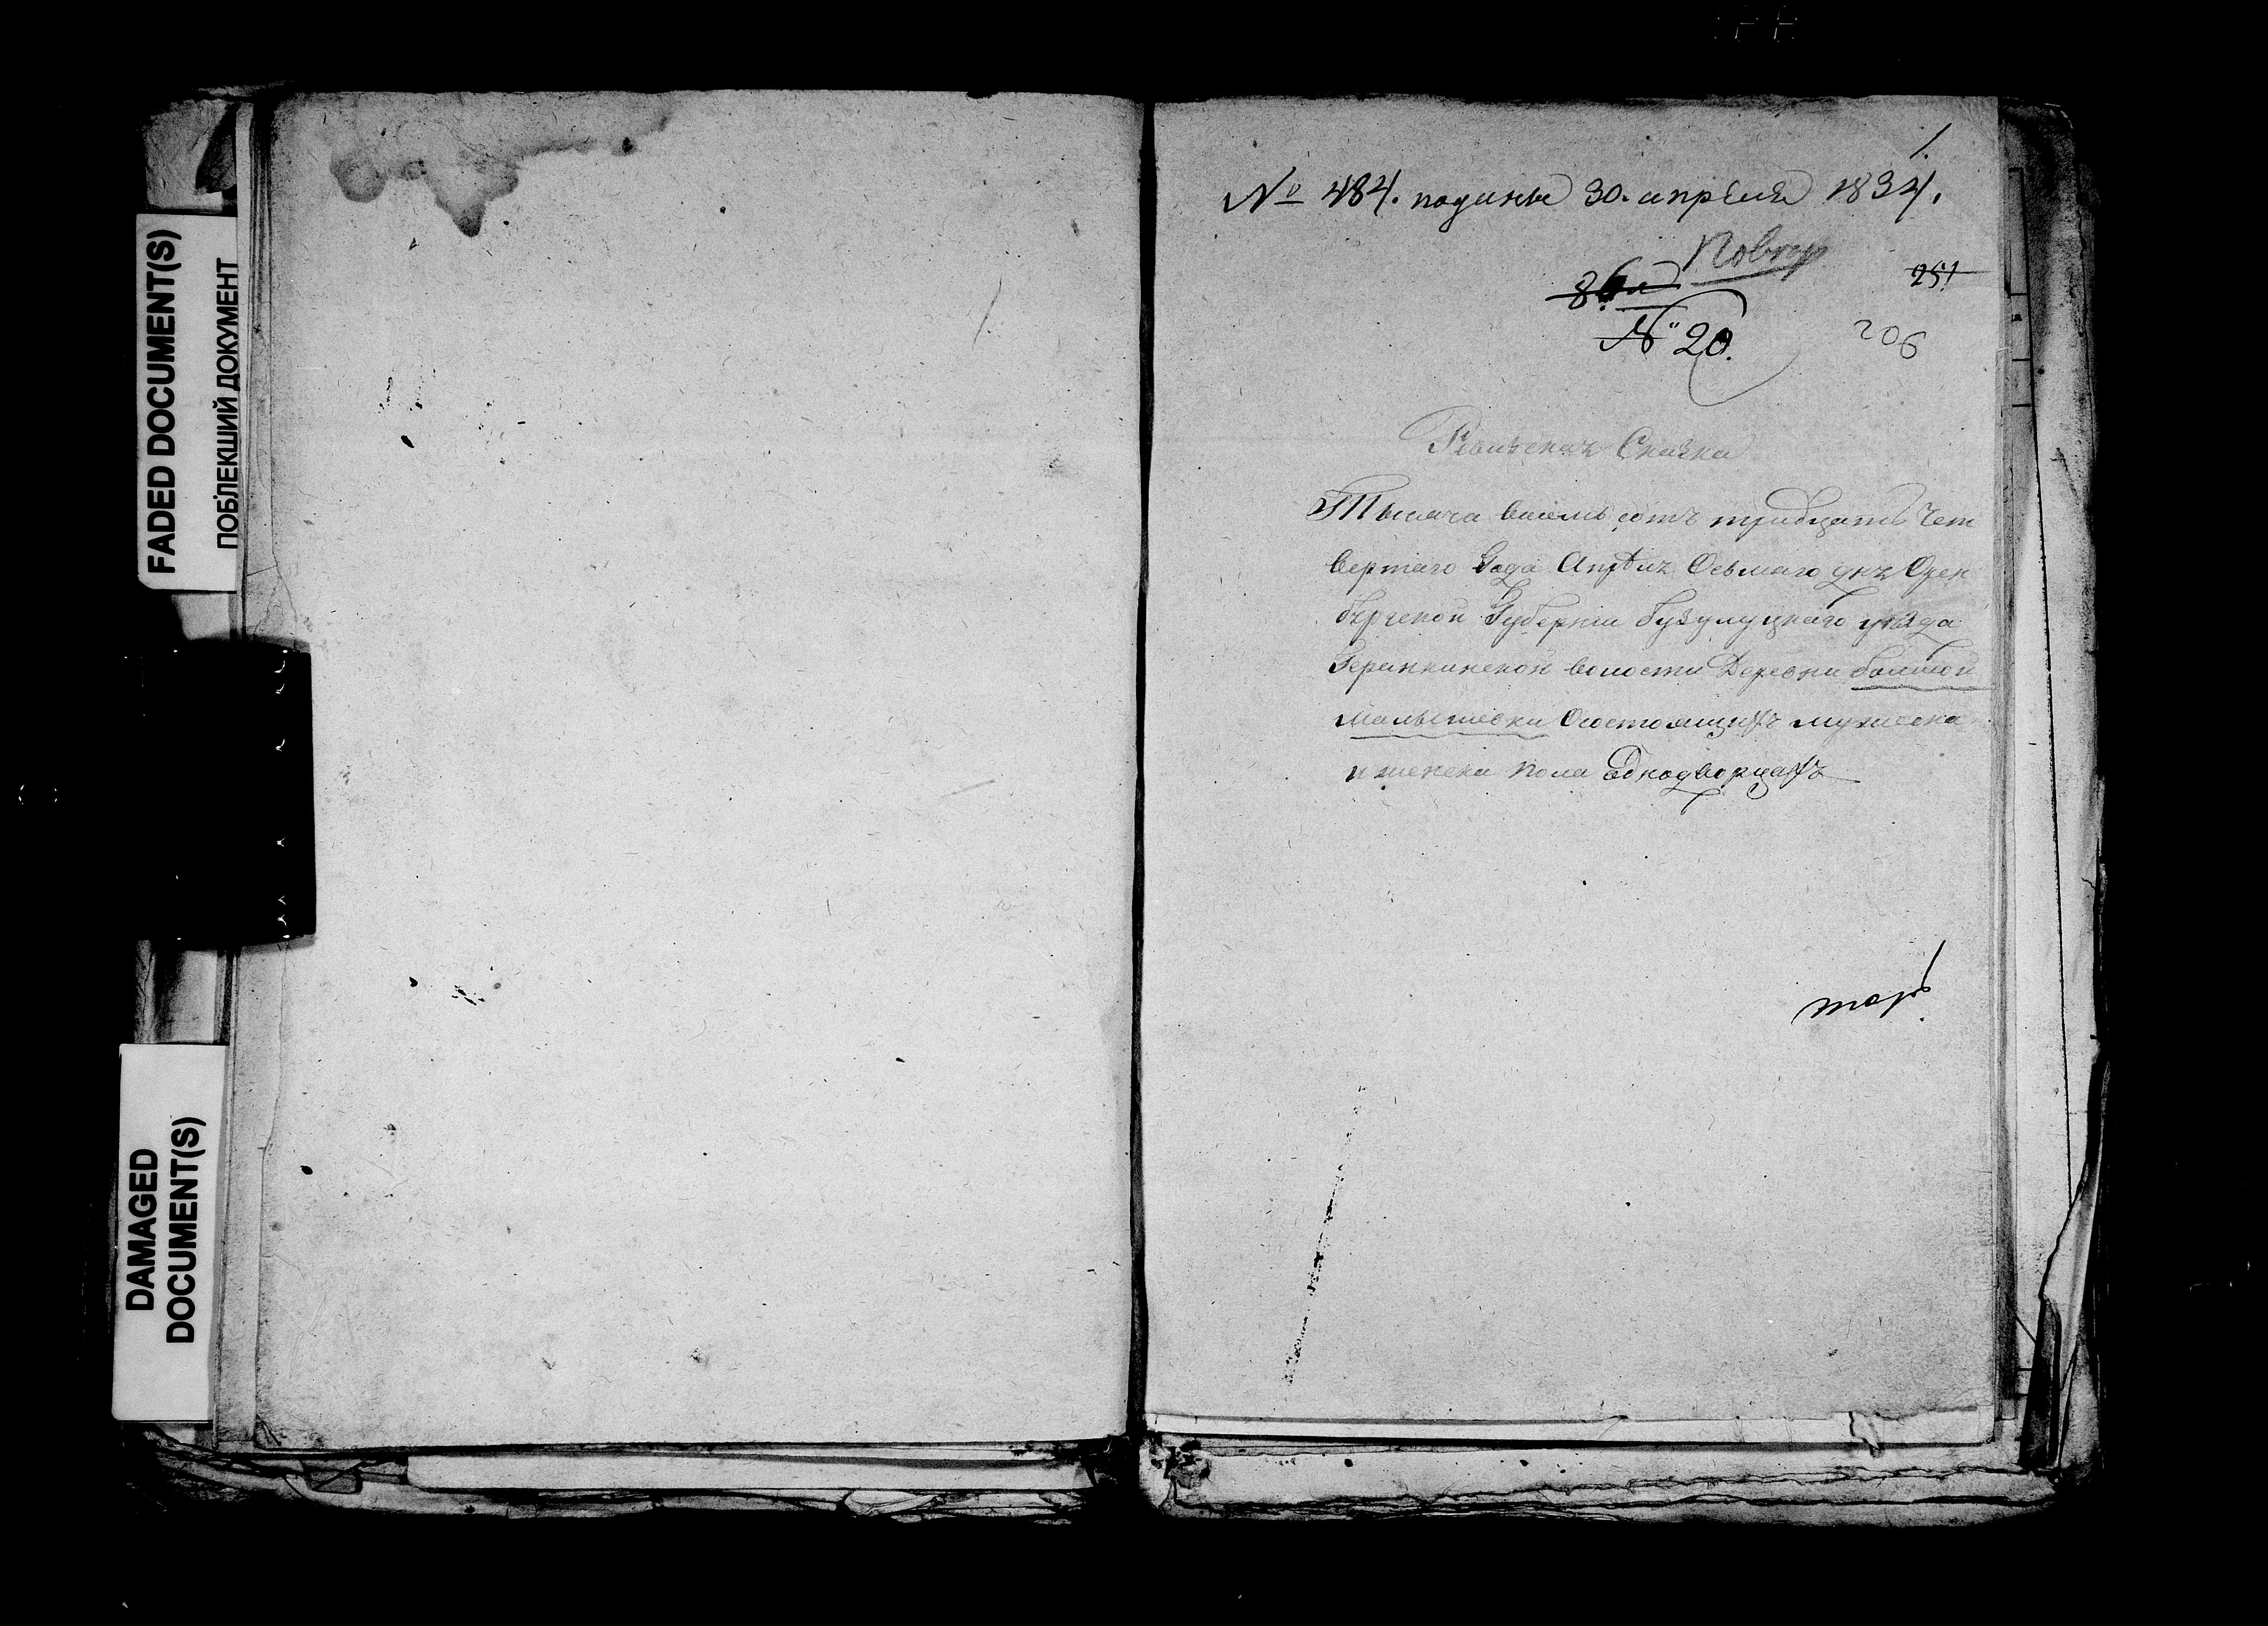 FADED DOCUMENT(S)
ПОБЛЕКШИЙ ДОКУМЕНТ
DAMAGED
DOCUMENT(S)
1.
№ 484. поданы 30. апреля 1834.
Повтор
251
№ 20.
206
Ревизская Сказка
Тысяча восемь сотъ тридцать чет
вертаго Года Апреля Осьмаго дня Орен
бургской Губернии бузулуцкаго уезда
волости Деревни большой
Малышевки Осостоящихъ мужска
и женска пола Однодворцахъ